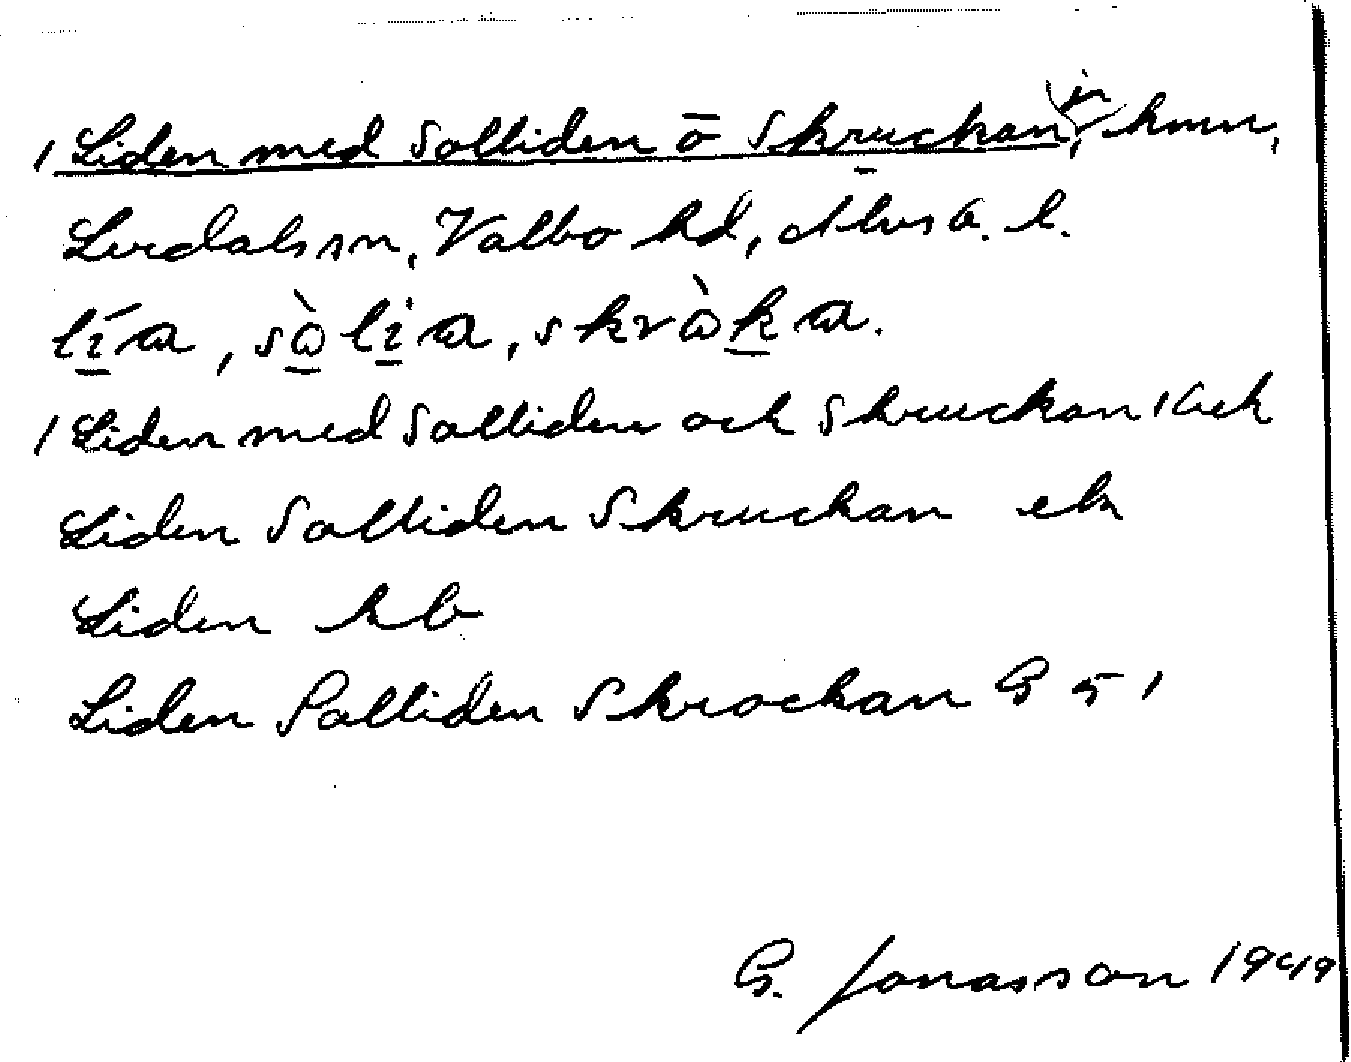 1 Liden med Solliden o Skruckan, in, hmn,
Lerdals sn, Valbo hd, Älvsb. l.
lía, sòlìa, skràka.
1 Liden med Solliden och Skruckan
Liden Solliden Skruckan ek
Liden hb
Liden Solliden Skrockan G 51
G. Jonasson 1949